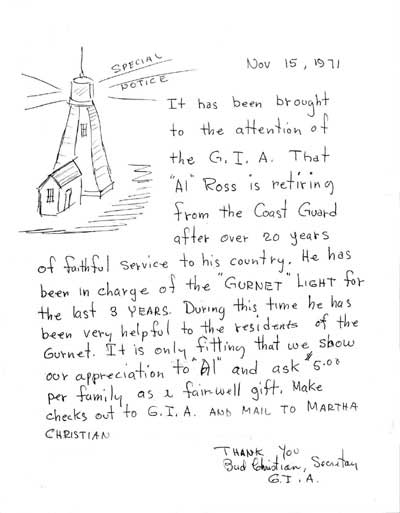 SPECIAL
NOTICE
Nov 15, 1971
It has been brought
to the attention of
the G. I. A. That
"Al" Ross is retiring
from the Coast Guard
after over 20 years
of faithful service to his country. He has
been in charge of the "GURNET" LIGHT for
the last 3 YEARS. During this time he has
been very helpful to the residents of the
Gurnet. It is only fitting that we show
our appreciation to "Al" and ask $5.00
per family as a fairwell gift. Make
checks out to G.I.A. AND MAIL TO MARTHA
CHRISTIAN
THANK YOU
Bud Christian, Secretary
G.I.A.